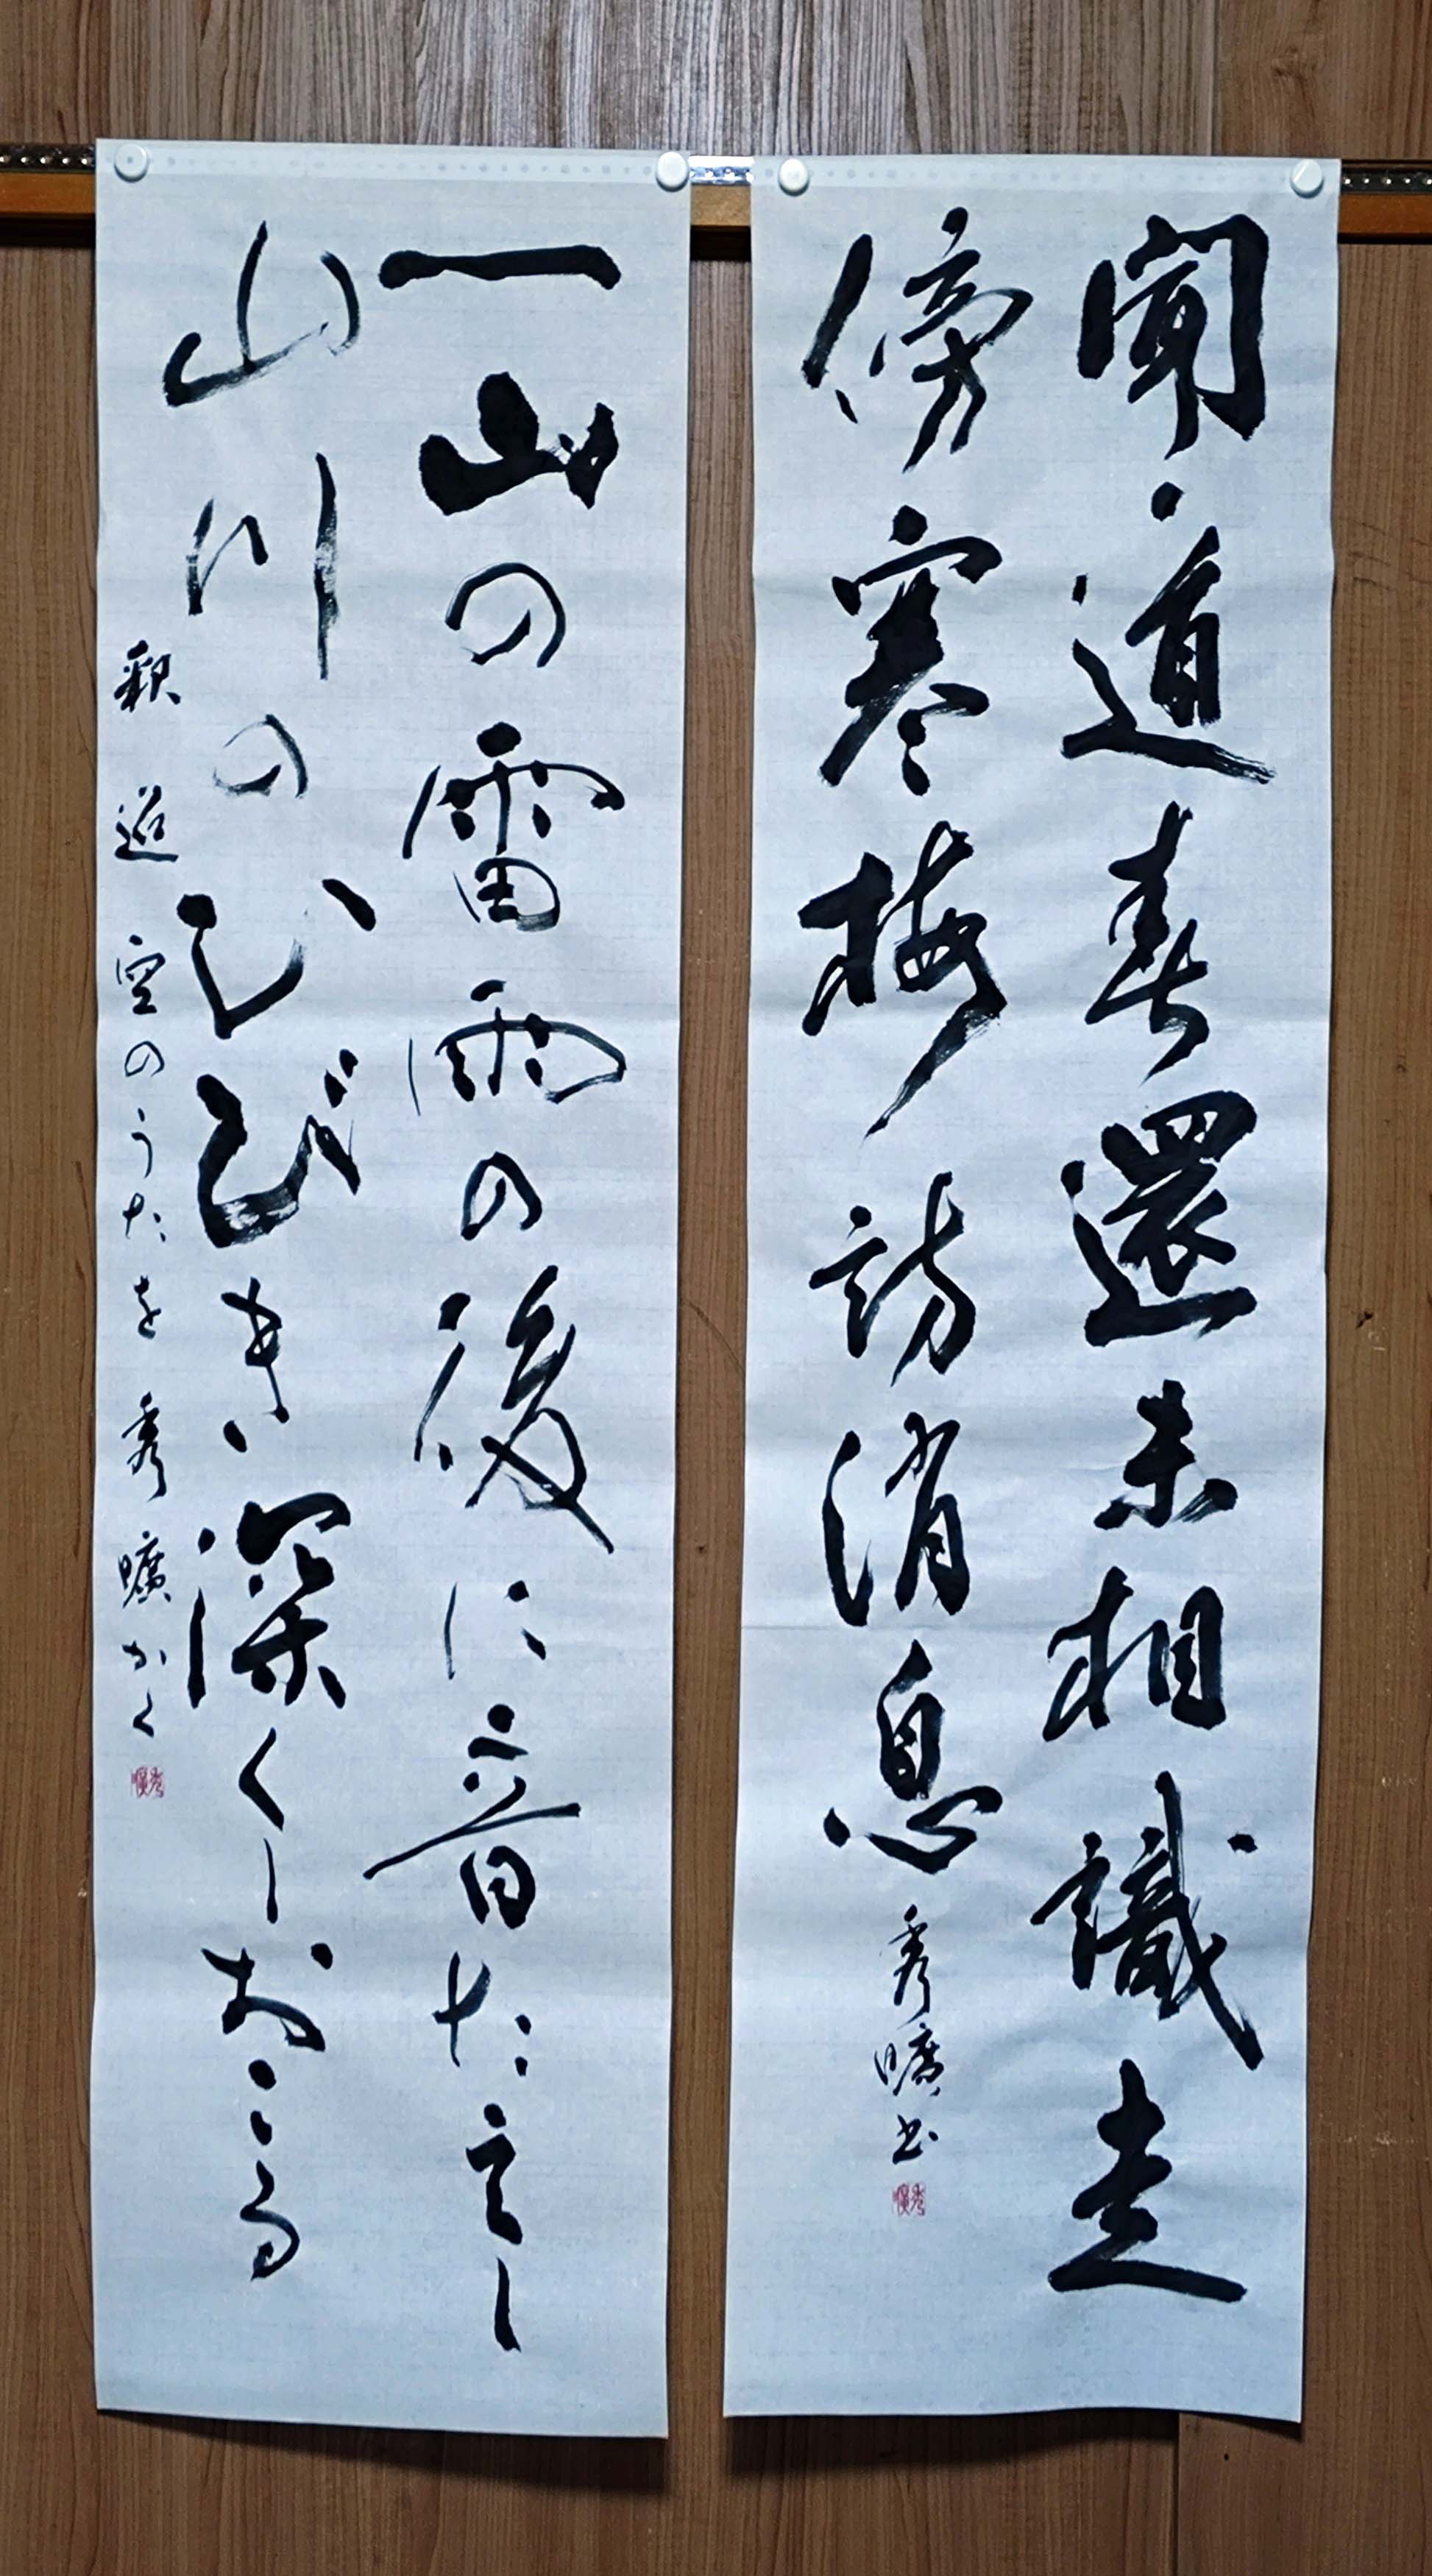 聞道春還未相識走
傍寒梅訪消息
秀曠書
一山の雷雨の後に音たえし
山川のひびき深くしおこる
釈迢空のうたを秀曠かく
秀曠
秀曠